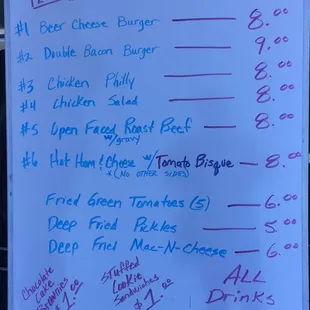 #1 Beer Cheese Burger — 8.00
#2 Double Bacon Burger — 9.00
#3 Chicken Philly — 8.00
#4 Chicken Salad — 8.00
#5 Open Faced Roast Beef — 8.00
w/gravy
#6 Hot Ham & Cheese w/ Tomato Bisque — 8.00
*(No other sides)
Fried Green Tomatoes (5) — 6.00
Deep Fried Pickles — 5.00
Deep Fried Mac-N-Cheese — 6.00
Chocolate
Cake
Brownies
$1.00
Stuffed
Cookie
Sandwiches
$1.00
ALL
Drinks